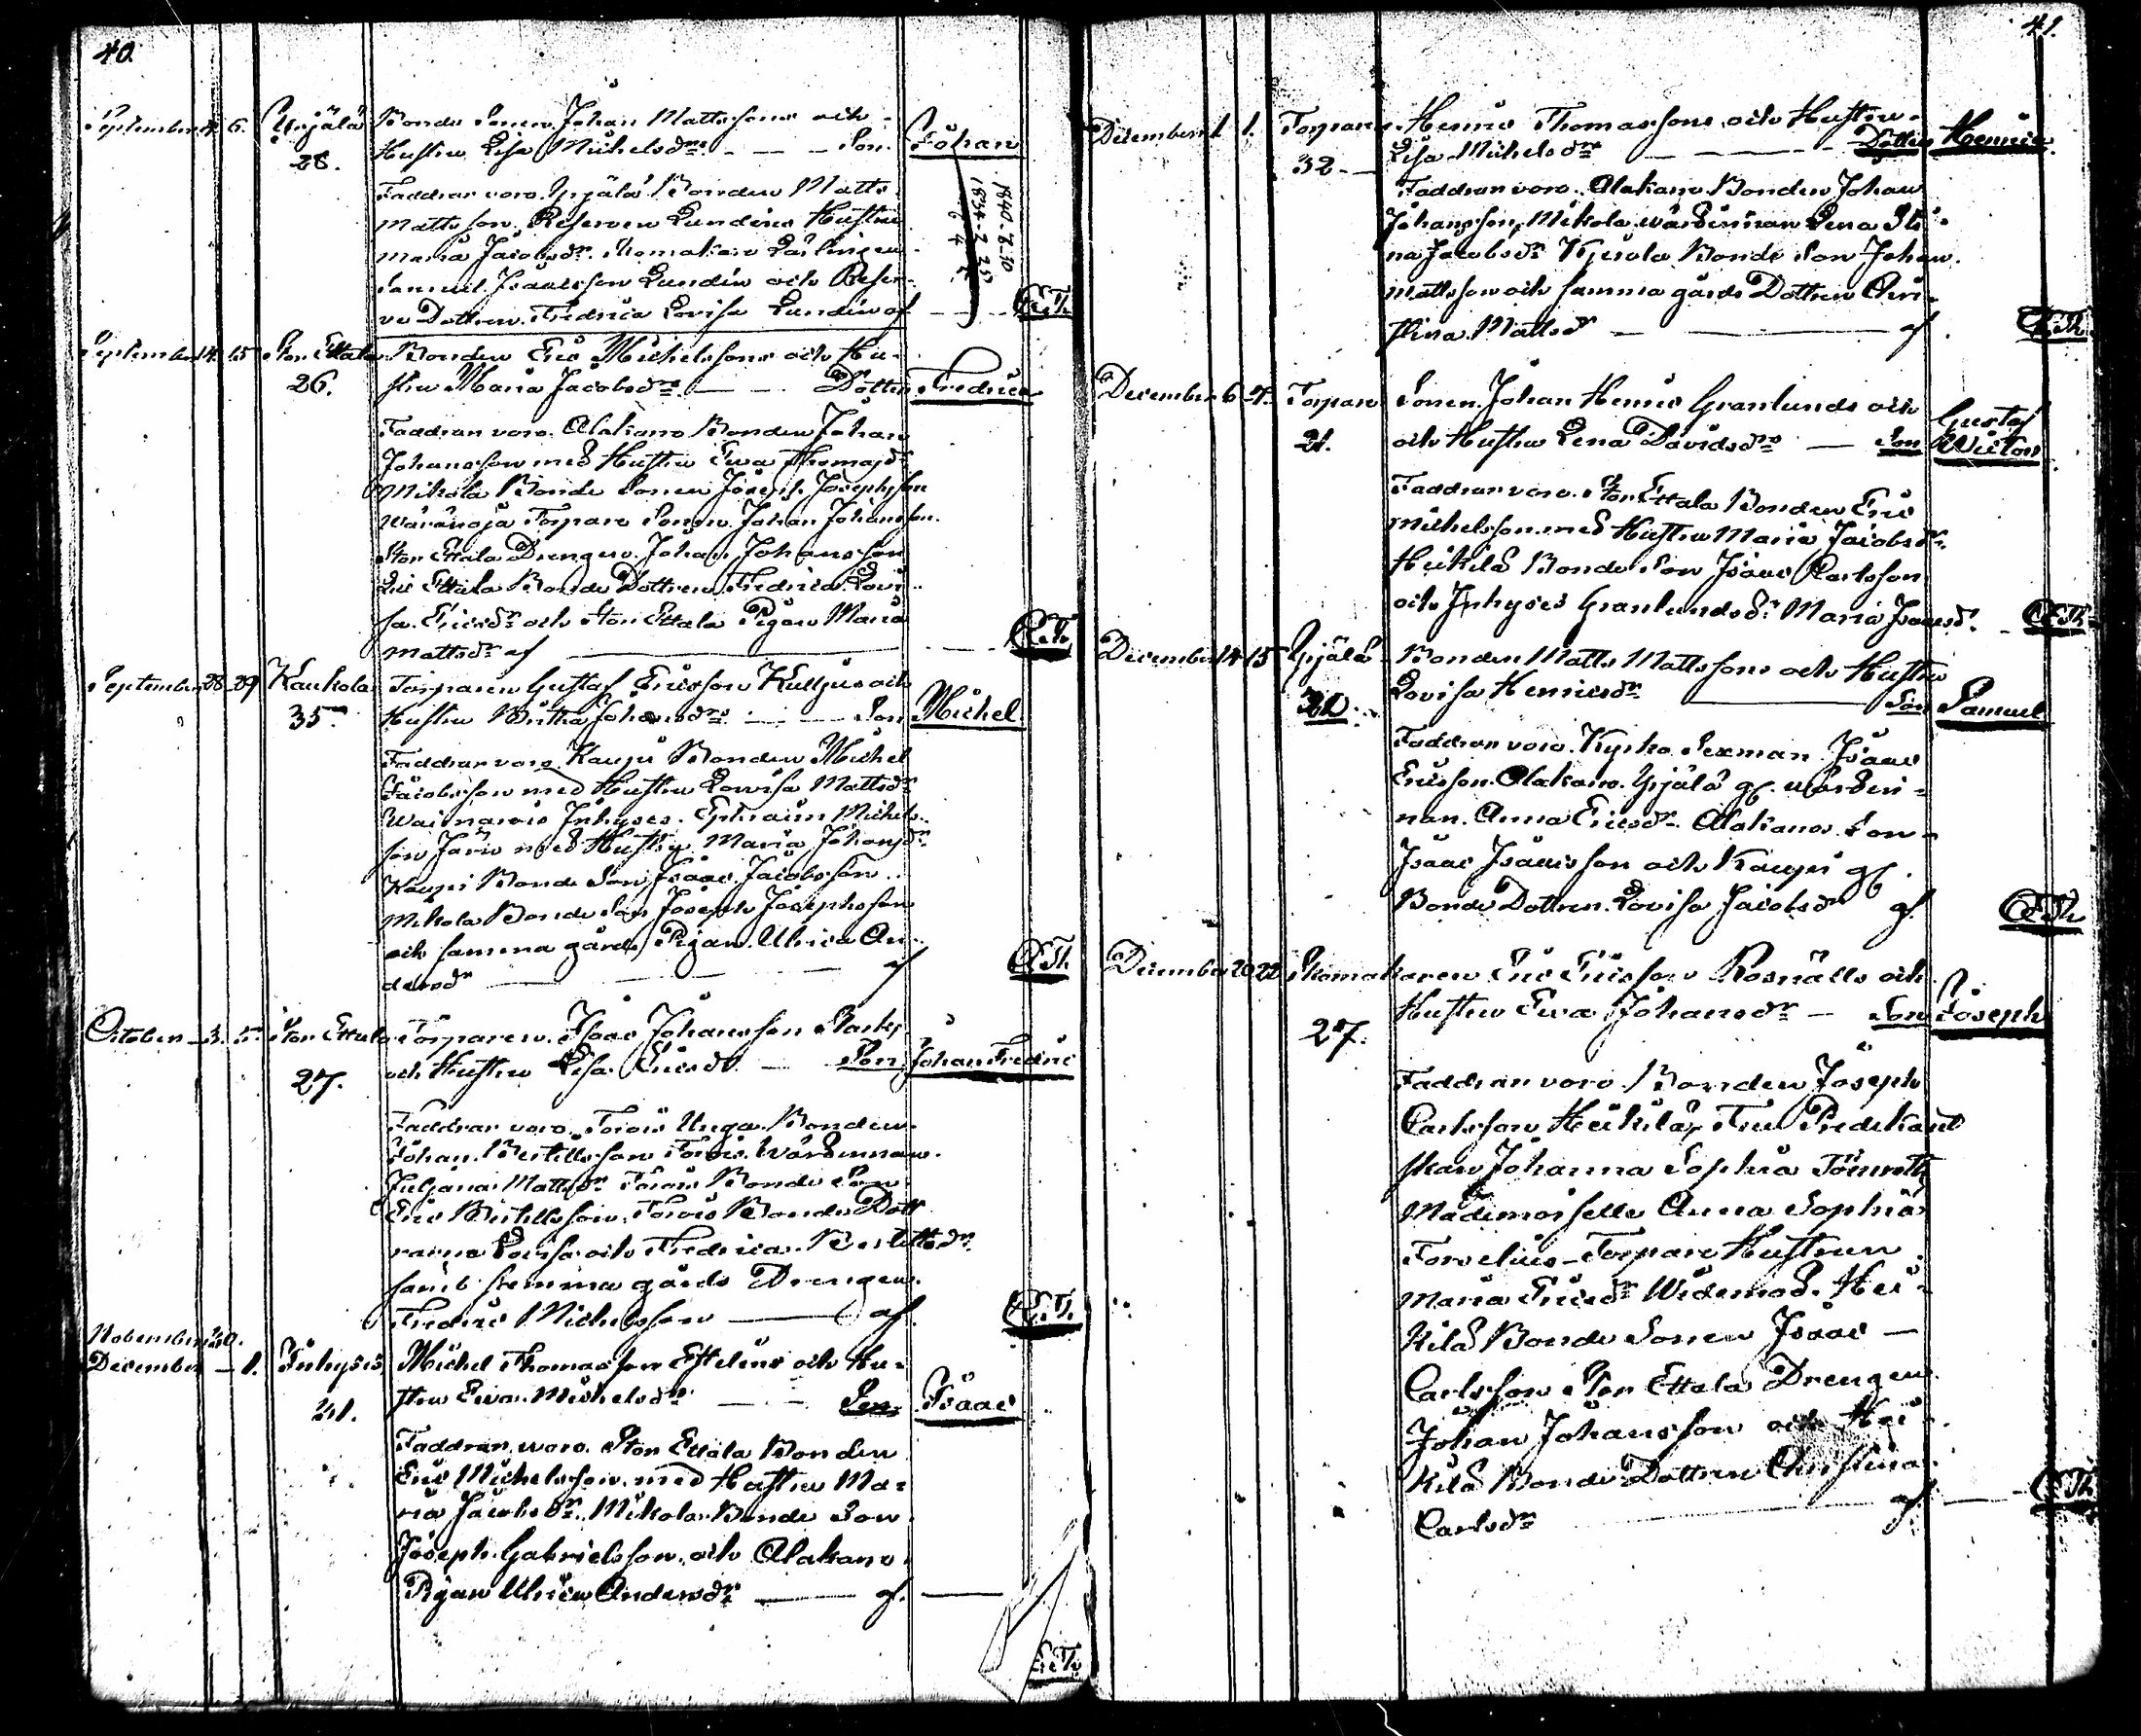 40.
September 4. 6. Ypjälä Bonde Sonen Johan Mattssons och
28. Hustru Lisa Michelsdr. - - - Son. Johan
Faddrar voro. Ypjälä Bonden Matts
Mattsson. Reserven Lundins Hustru
Maria Jacobsdr. Skomakare Lärlingen
Samuel Isaacsson Lundin och Reser-
ve Dottren. Fredrica Lovisa Lundin af
1840-8-10
1834-2-25
6 4
September 14. 15 Stor Ettala Bonden Eric Michelssons och Hu-
26. stru Maria Jacobsdr. - - Dotter Fredrica
Faddrar voro. Alakano Bonden Johan
Johansson med Hustru Ewa Thomasdr.
Mikola Bonde Sonen Joseph Josephsson
Torpare Sonen Johan Johansson.
Stor Ettala Drengen. Johan Johansson
Ettala Bonde Dottren Fredrica Lovi-
sa Ericsdr. och Stor Ettala Pigan Maria
Mattsdr. af
September 28. 29 Kaukola Torparen Gustaf Ericsson Kulljus och
35. Hustru Johansdr. - - Son Michel
Faddrar voro Kaupi Bonden Michel
Jacobsson med Hustru Lovisa Mattsdr.
Inhyses. Ephraim Michels-
son med Hustru Maria Johansdr.
Kaupi Bonde Son Isaac Jacobsson
Mikola Bonde Son Joseph Josephsson
och samma gårds Pigan Ulrica An-
dersdr. af
October 3. 5. Stor Ettala Torparen. Isaac Johansson
27. och Hustru Lisa Ericsdr. - Son Johan Fredric
Faddrar voro. Torois Unga Bonden
Johan Bertillsson Torois Värdinnan.
Juljana Mattsdr. Torois Bonde Son
Eric Bertillsson, Torois Bonde Dött-
rarna Lovisa och Fredrica Bertillsdr.
samt samma gårds Drengen.
Fredric Michelsson af.
November 30.
December - 1. Inhyses, Michel Thomasson och Hu-
21. stru Ewa Michelsdr. - - Son Isaac
Faddrar woro. Stor Ettala Bonden
Eric Michelsson med Hustru Ma-
ria Jacobsdr. Mikola Bonde Son
Joseph Gabrielsson. och Alakano
Pigan Ulrica Andersdr. af.
41.
December 1. 1. Torparen Henric Thomassons och Hustru
32 - Lisa Michelsdr. - - Dotter Henrica.
Faddrar voro. Alakano Bonden Johan
Johansson, Mikola wärdinnan Lena Sti-
na Jacobsdr. Bonde Son Johan
Mattsson och samma gårds Dottren Chri-
stina Mattsdr. af
December 6. 7. Torpare Sonen. Johan Henric Granlunds och
21. och Hustru Lena Davidsdr. - Son Gustaf
Faddrar voro. Stor Ettala Bonden Eric
Michelsson med Hustru Maria Jacobsdr.
Heikilä Bonde Son Isaac Carlsson
och Inhyses Granlunds Dr. Maria Isaacsd.
December 14 15 Ypjälä Bonden Matts Mattssons och Hustru
Lovisa Henricsdr. Son Samuel
Faddrar voro. Kyrko Sexman Isaac
Ericsson. Alakano. Ypjälä gl. wärdin-
nan. Anna Ericsdr. Alakano Son
Isaac Isaacsson och Kaupi gl.
Bonde Dottren. Lovisa Jacobsdr. af
December 20 22 Skomakaren Eric Ericsson Rosnälls och
Hustru Ewa Johansdr. - Son Joseph
27.
Faddrar voro. Bonden Joseph
Carlsson Heikilä, Fru Predikant-
skan Johanna Sophia
Mademoiselle Anna Sophia
Forselius Torpare Hustrun
Maria Ericsdr. Hei-
kilä Bonde Sonen Isaac -
Carlsson Stor Ettala Drengen
Johan Johansson och Hei-
kilä Bonde Dottren Christina
Carlsdr. af